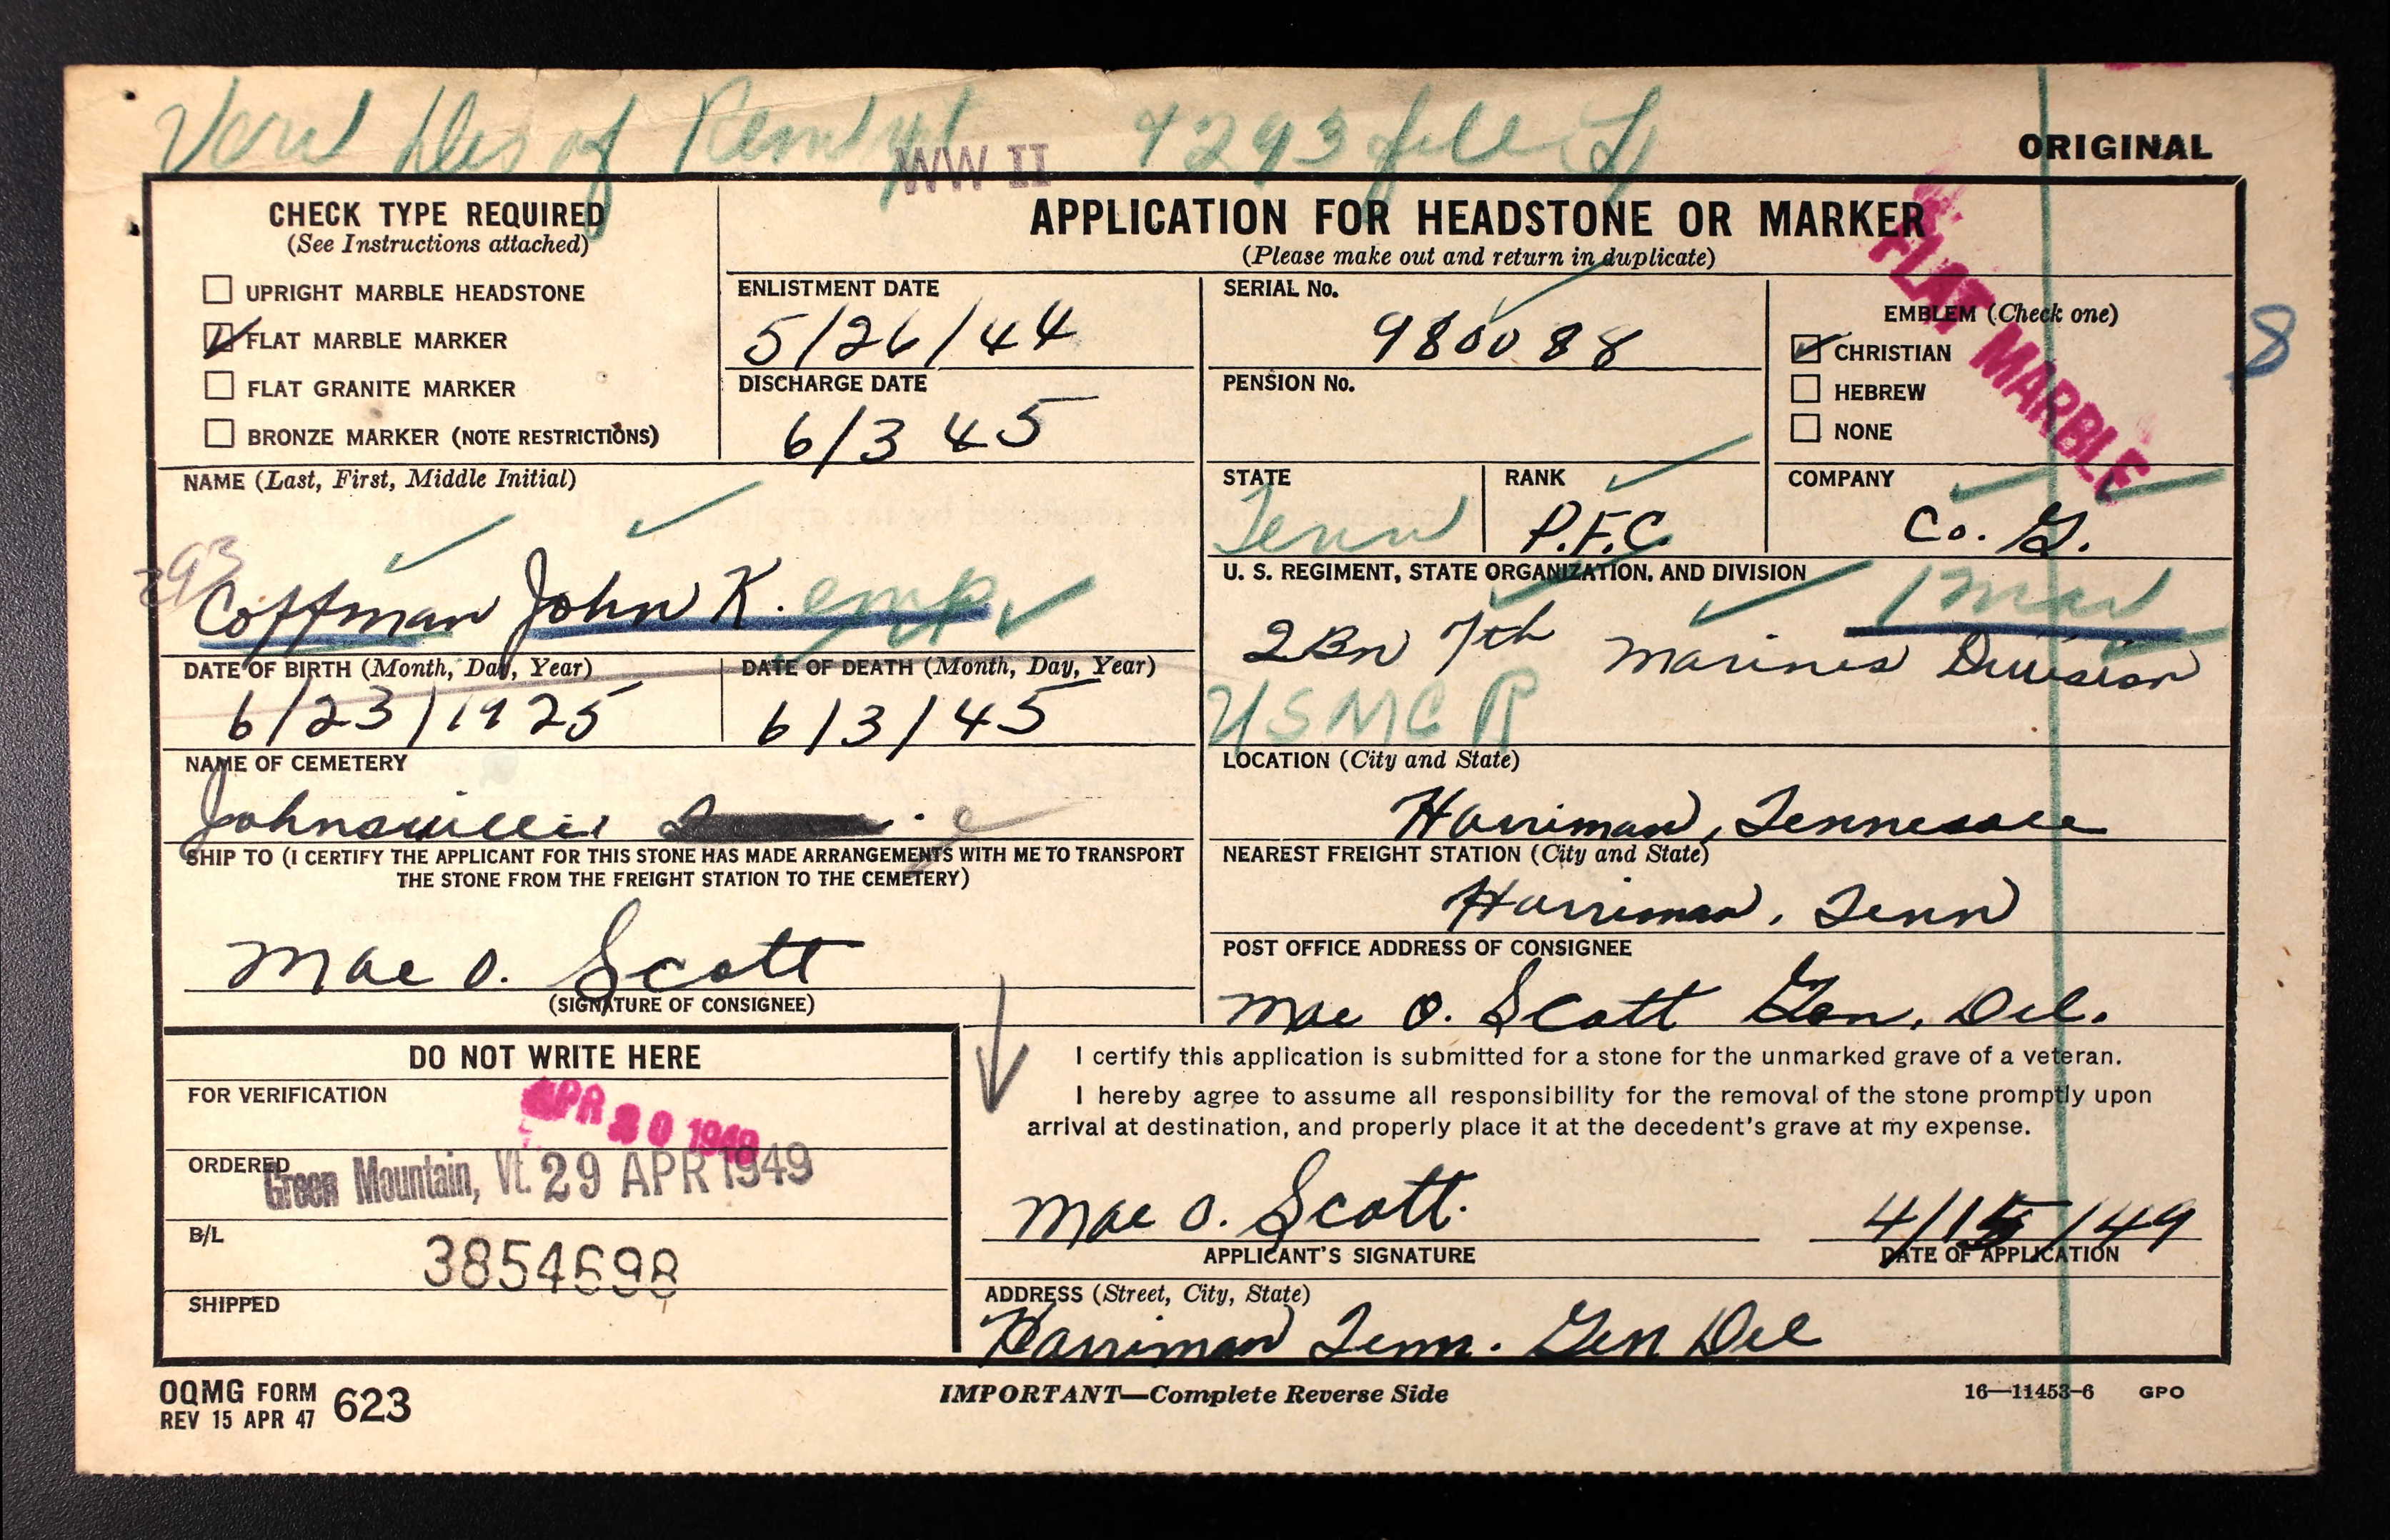 4293 file
WW II
ORIGINAL
CHECK TYPE REQUIRED
(See Instructions attached)
UPRIGHT MARBLE HEADSTONE
FLAT MARBLE MARKER
FLAT GRANITE MARKER
BRONZE MARKER (NOTE RESTRICTIONS)
APPLICATION FOR HEADSTONE OR MARKER
(Please make out and return in duplicate)
ENLISTMENT DATE
5/26/44
DISCHARGE DATE
6/3 45
SERIAL No.
980088
PENSION No.
EMBLEM (Check one)
CHRISTIAN
HEBREW
NONE
FLAT MARBLE
8
NAME (Last, First, Middle Initial)
293
Coffman John K. emp
STATE
Tenn
RANK
P.F.C.
COMPANY
Co. G.
U. S. REGIMENT, STATE ORGANIZATION, AND DIVISION
1 Mar
2 Bn 7th Marines Division
USMCR
DATE OF BIRTH (Month, Day, Year)
6/23/1925
DATE OF DEATH (Month, Day, Year)
6/3/45
NAME OF CEMETERY
LOCATION (City and State)
Harriman, Tennessee
SHIP TO (I CERTIFY THE APPLICANT FOR THIS STONE HAS MADE ARRANGEMENTS WITH ME TO TRANSPORT
THE STONE FROM THE FREIGHT STATION TO THE CEMETERY)
Mae O. Scott
(SIGNATURE OF CONSIGNEE)
NEAREST FREIGHT STATION (City and State)
Harriman, Tenn
POST OFFICE ADDRESS OF CONSIGNEE
Mae O. Scott Gen. Del.
DO NOT WRITE HERE
FOR VERIFICATION
APR 20 1949
ORDERED
Green Mountain, Vt. 29 APR 1949
B/L
3854698
SHIPPED
I certify this application is submitted for a stone for the unmarked grave of a veteran.
I hereby agree to assume all responsibility for the removal of the stone promptly upon
arrival at destination, and properly place it at the decedent's grave at my expense.
Mae O. Scott.
APPLICANT'S SIGNATURE
4/15/49
DATE OF APPLICATION
ADDRESS (Street, City, State)
Harriman Tenn. Gen Del
OQMG FORM 623
REV 15 APR 47
IMPORTANT—Complete Reverse Side
16—11453-6 GPO